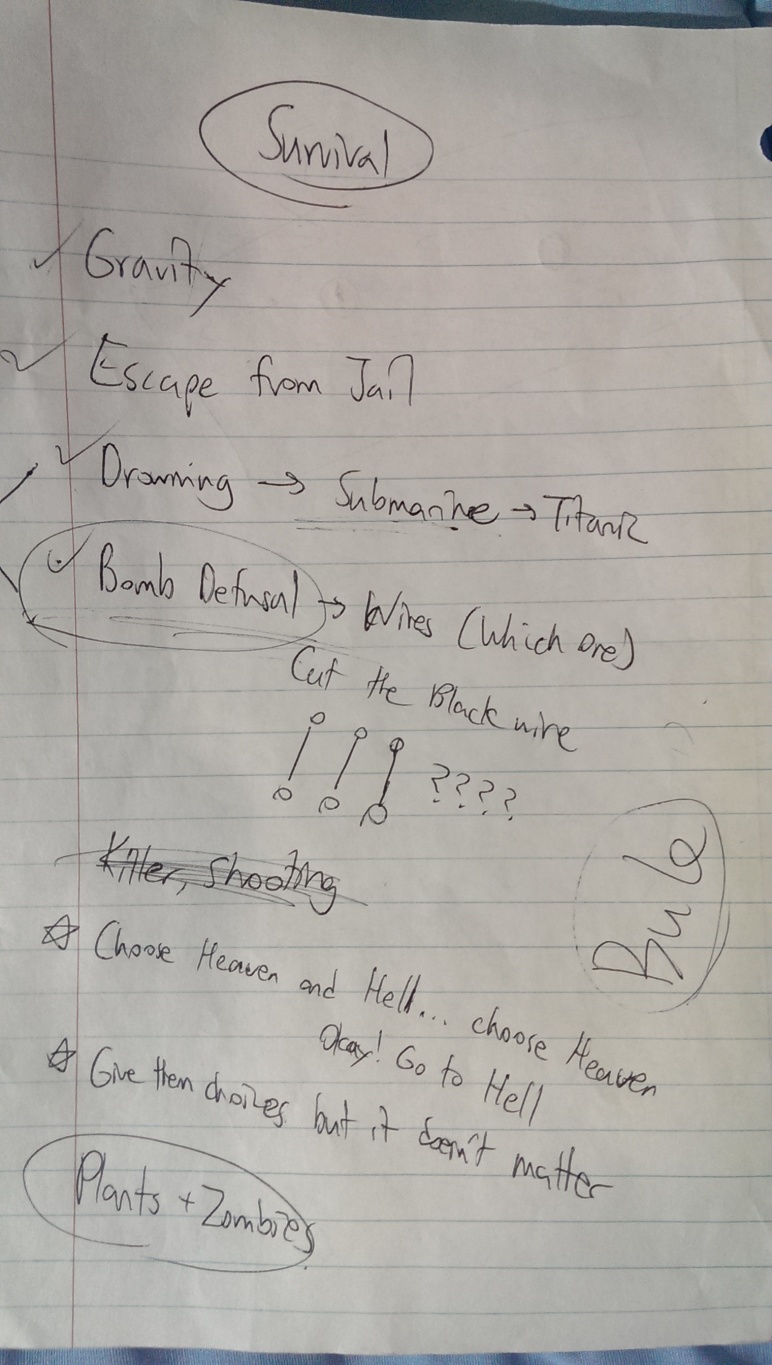 Survival
Gravity
Escape from Jail
Drowning → Submarine → Titanic
Bomb Defusal → Wires (Which one)
Cut the Black wire
????
Killer, Shooting
Choose Heaven and Hell... choose Heaven
Okay! Go to Hell
Give them choices but it doesn't matter
Plants + Zombies